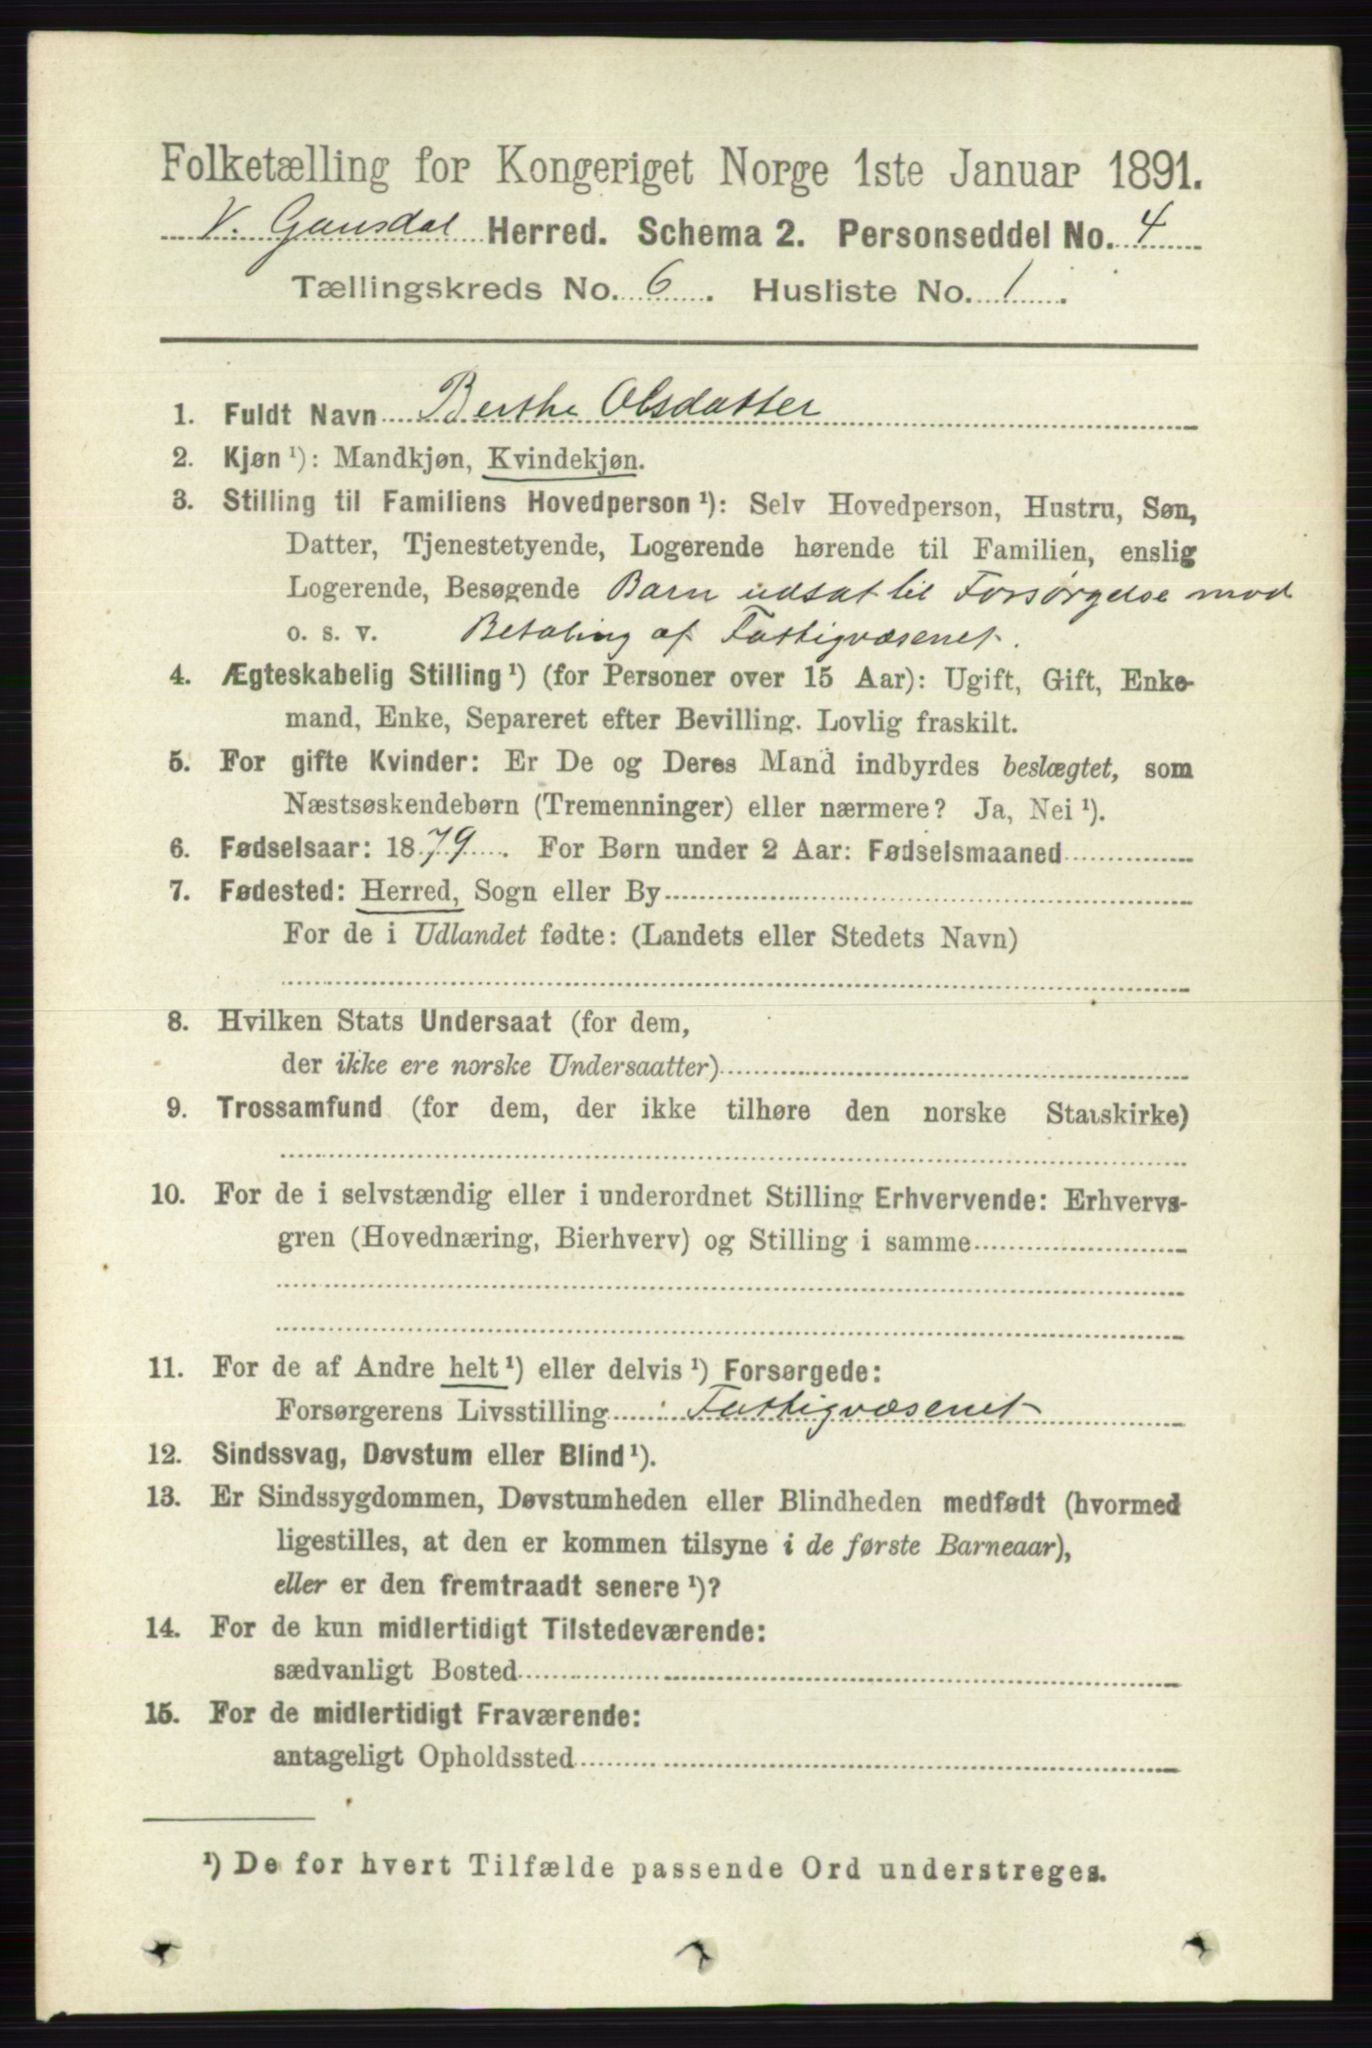 Folketælling for Kongeriget Norge 1ste Januar 1891.
V. Gausdal Herred. Schema 2. Personseddel No. 4
Tællingskreds No. 6. Husliste No. 1.
1. Fuldt Navn Berthe Olsdatter
2. Kjøn ¹): Mandkjøn, Kvindekjøn.
3. Stilling til Familiens Hovedperson ¹): Selv Hovedperson, Hustru, Søn,
Datter, Tjenestetyende, Logerende hørende til Familien, enslig
Logerende, Besøgende Barn udsat til Forsørgelse mod
o. s. v. Betaling af Fattigvæsenet.
4. Ægteskabelig Stilling ¹) (for Personer over 15 Aar): Ugift, Gift, Enke-
mand, Enke, Separeret efter Bevilling. Lovlig fraskilt.
5. For gifte Kvinder: Er De og Deres Mand indbyrdes beslægtet, som
Næstsøskendebørn (Tremenninger) eller nærmere? Ja, Nei ¹).
6. Fødselsaar: 1879. For Børn under 2 Aar: Fødselsmaaned
7. Fødested: Herred, Sogn eller By
For de i Udlandet fødte: (Landets eller Stedets Navn)
8. Hvilken Stats Undersaat (for dem,
der ikke ere norske Undersaatter)
9. Trossamfund (for dem, der ikke tilhøre den norske Statskirke)
10. For de i selvstændig eller i underordnet Stilling Erhvervende: Erhvervs-
gren (Hovednæring, Bierhverv) og Stilling i samme
11. For de af Andre helt ¹) eller delvis ¹) Forsørgede:
Forsørgerens Livsstilling Fattigvæsenet
12. Sindssvag, Døvstum eller Blind ¹).
13. Er Sindssygdommen, Døvstumheden eller Blindheden medfødt (hvormed
ligestilles, at den er kommen tilsyne i de første Barneaar),
eller er den fremtraadt senere ¹)?
14. For de kun midlertidigt Tilstedeværende:
sædvanligt Bosted
15. For de midlertidigt Fraværende:
antageligt Opholdssted
¹) De for hvert Tilfælde passende Ord understreges.